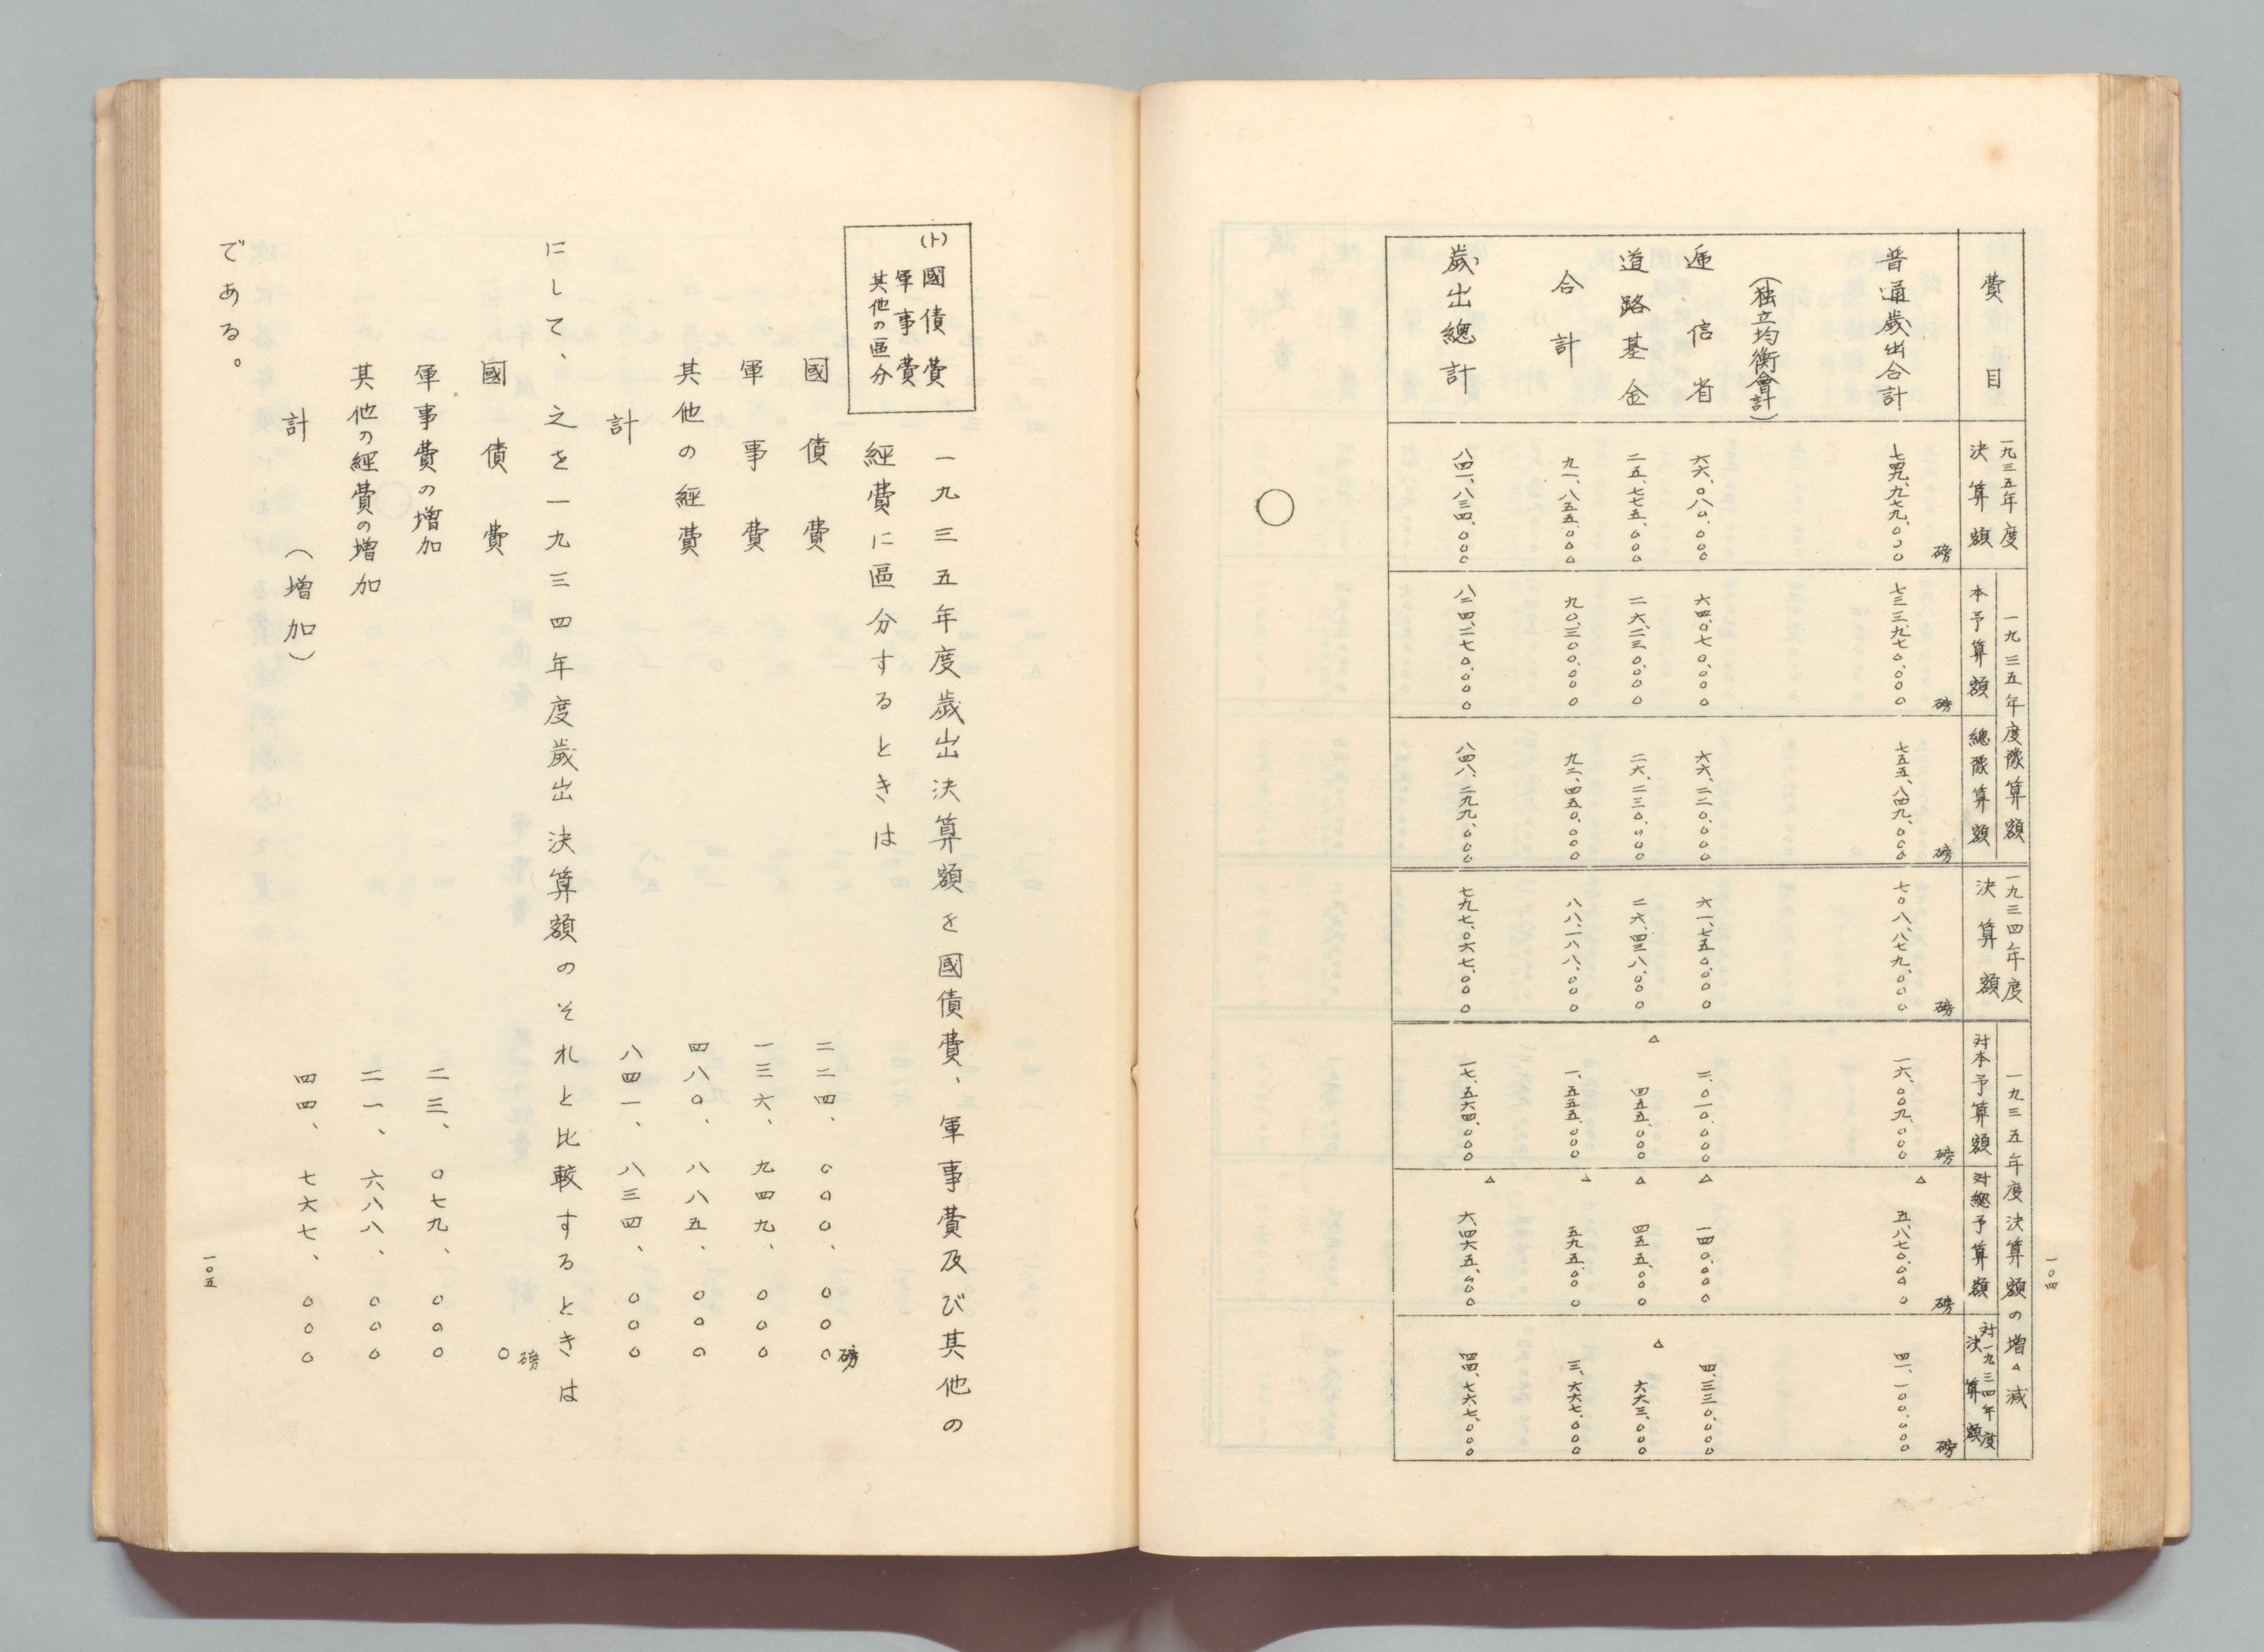 費目 一九三五年度決算額 一九三五年度豫算額 本予算額 總豫算額 一九三四年度決算額 一九三五年度決算額の増△減 対本予算額 対總予算額 対一九三四年度決算額
磅 磅 磅 磅 磅 磅 磅
普通歳出合計 七四九、九七九、〇〇〇 七三三、九七〇、〇〇〇 七五五、八四九、〇〇〇 七〇八、八七九、〇〇〇 一六、〇〇九、〇〇〇 △五、八七〇、〇〇〇 四一、一〇〇、〇〇〇
(独立均衡會計)
逓信省 六六、〇八〇、〇〇〇 六四、〇七〇、〇〇〇 六六、二二〇、〇〇〇 六一、七五〇、〇〇〇 二、〇一〇、〇〇〇 △一四〇、〇〇〇 四、三三〇、〇〇〇
道路基金 二五、七七五、〇〇〇 二六、二三〇、〇〇〇 二六、二三〇、〇〇〇 二六、四三八、〇〇〇 △四五五、〇〇〇 △四五五、〇〇〇 △六六三、〇〇〇
合計 九一、八五五、〇〇〇 九〇、三〇〇、〇〇〇 九二、四五〇、〇〇〇 八八、一八八、〇〇〇 一、五五五、〇〇〇 △五九五、〇〇〇 三、六六七、〇〇〇
歳出總計 八四一、八三四、〇〇〇 八二四、二七〇、〇〇〇 八四八、二九九、〇〇〇 七九七、〇六七、〇〇〇 一七、五六四、〇〇〇 △六、四六五、〇〇〇 四四、七六七、〇〇〇
○
一〇四
(ト)國債費
軍事費
其他の區分
一九三五年度歳出決算額を國債費、軍事費及び其他の
經費に區分するときは
國債費 二二四、〇〇〇、〇〇〇磅
軍事費 一三六、九四九、〇〇〇
其他の經費 四八〇、八八五、〇〇〇
計 八四一、八三四、〇〇〇
にして、之を一九三四年度歳出決算額のそれと比較するときは
國債費 〇磅
軍事費の増加 二三、〇七九、〇〇〇
其他の經費の増加 二一、六八八、〇〇〇
計(増加) 四四、七六七、〇〇〇
である。
一〇五